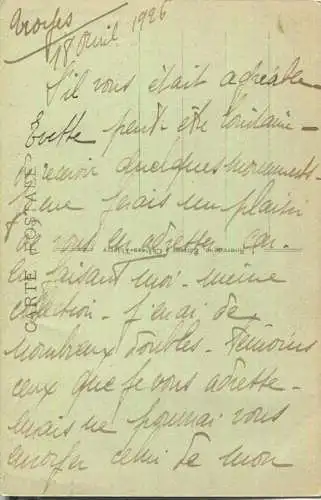 Troyes
18 Avril 1926
S'il vous était agréable
peut-être
recevoir quelques monuments
je me ferais un plaisir
de vous en adresser car
en faisant moi-même
collection - j'en ai de
nombreux doubles. Témoins
ceux que je vous adresse
mais ne pourrai vous
envoyer celui de mon
CARTE POSTALE